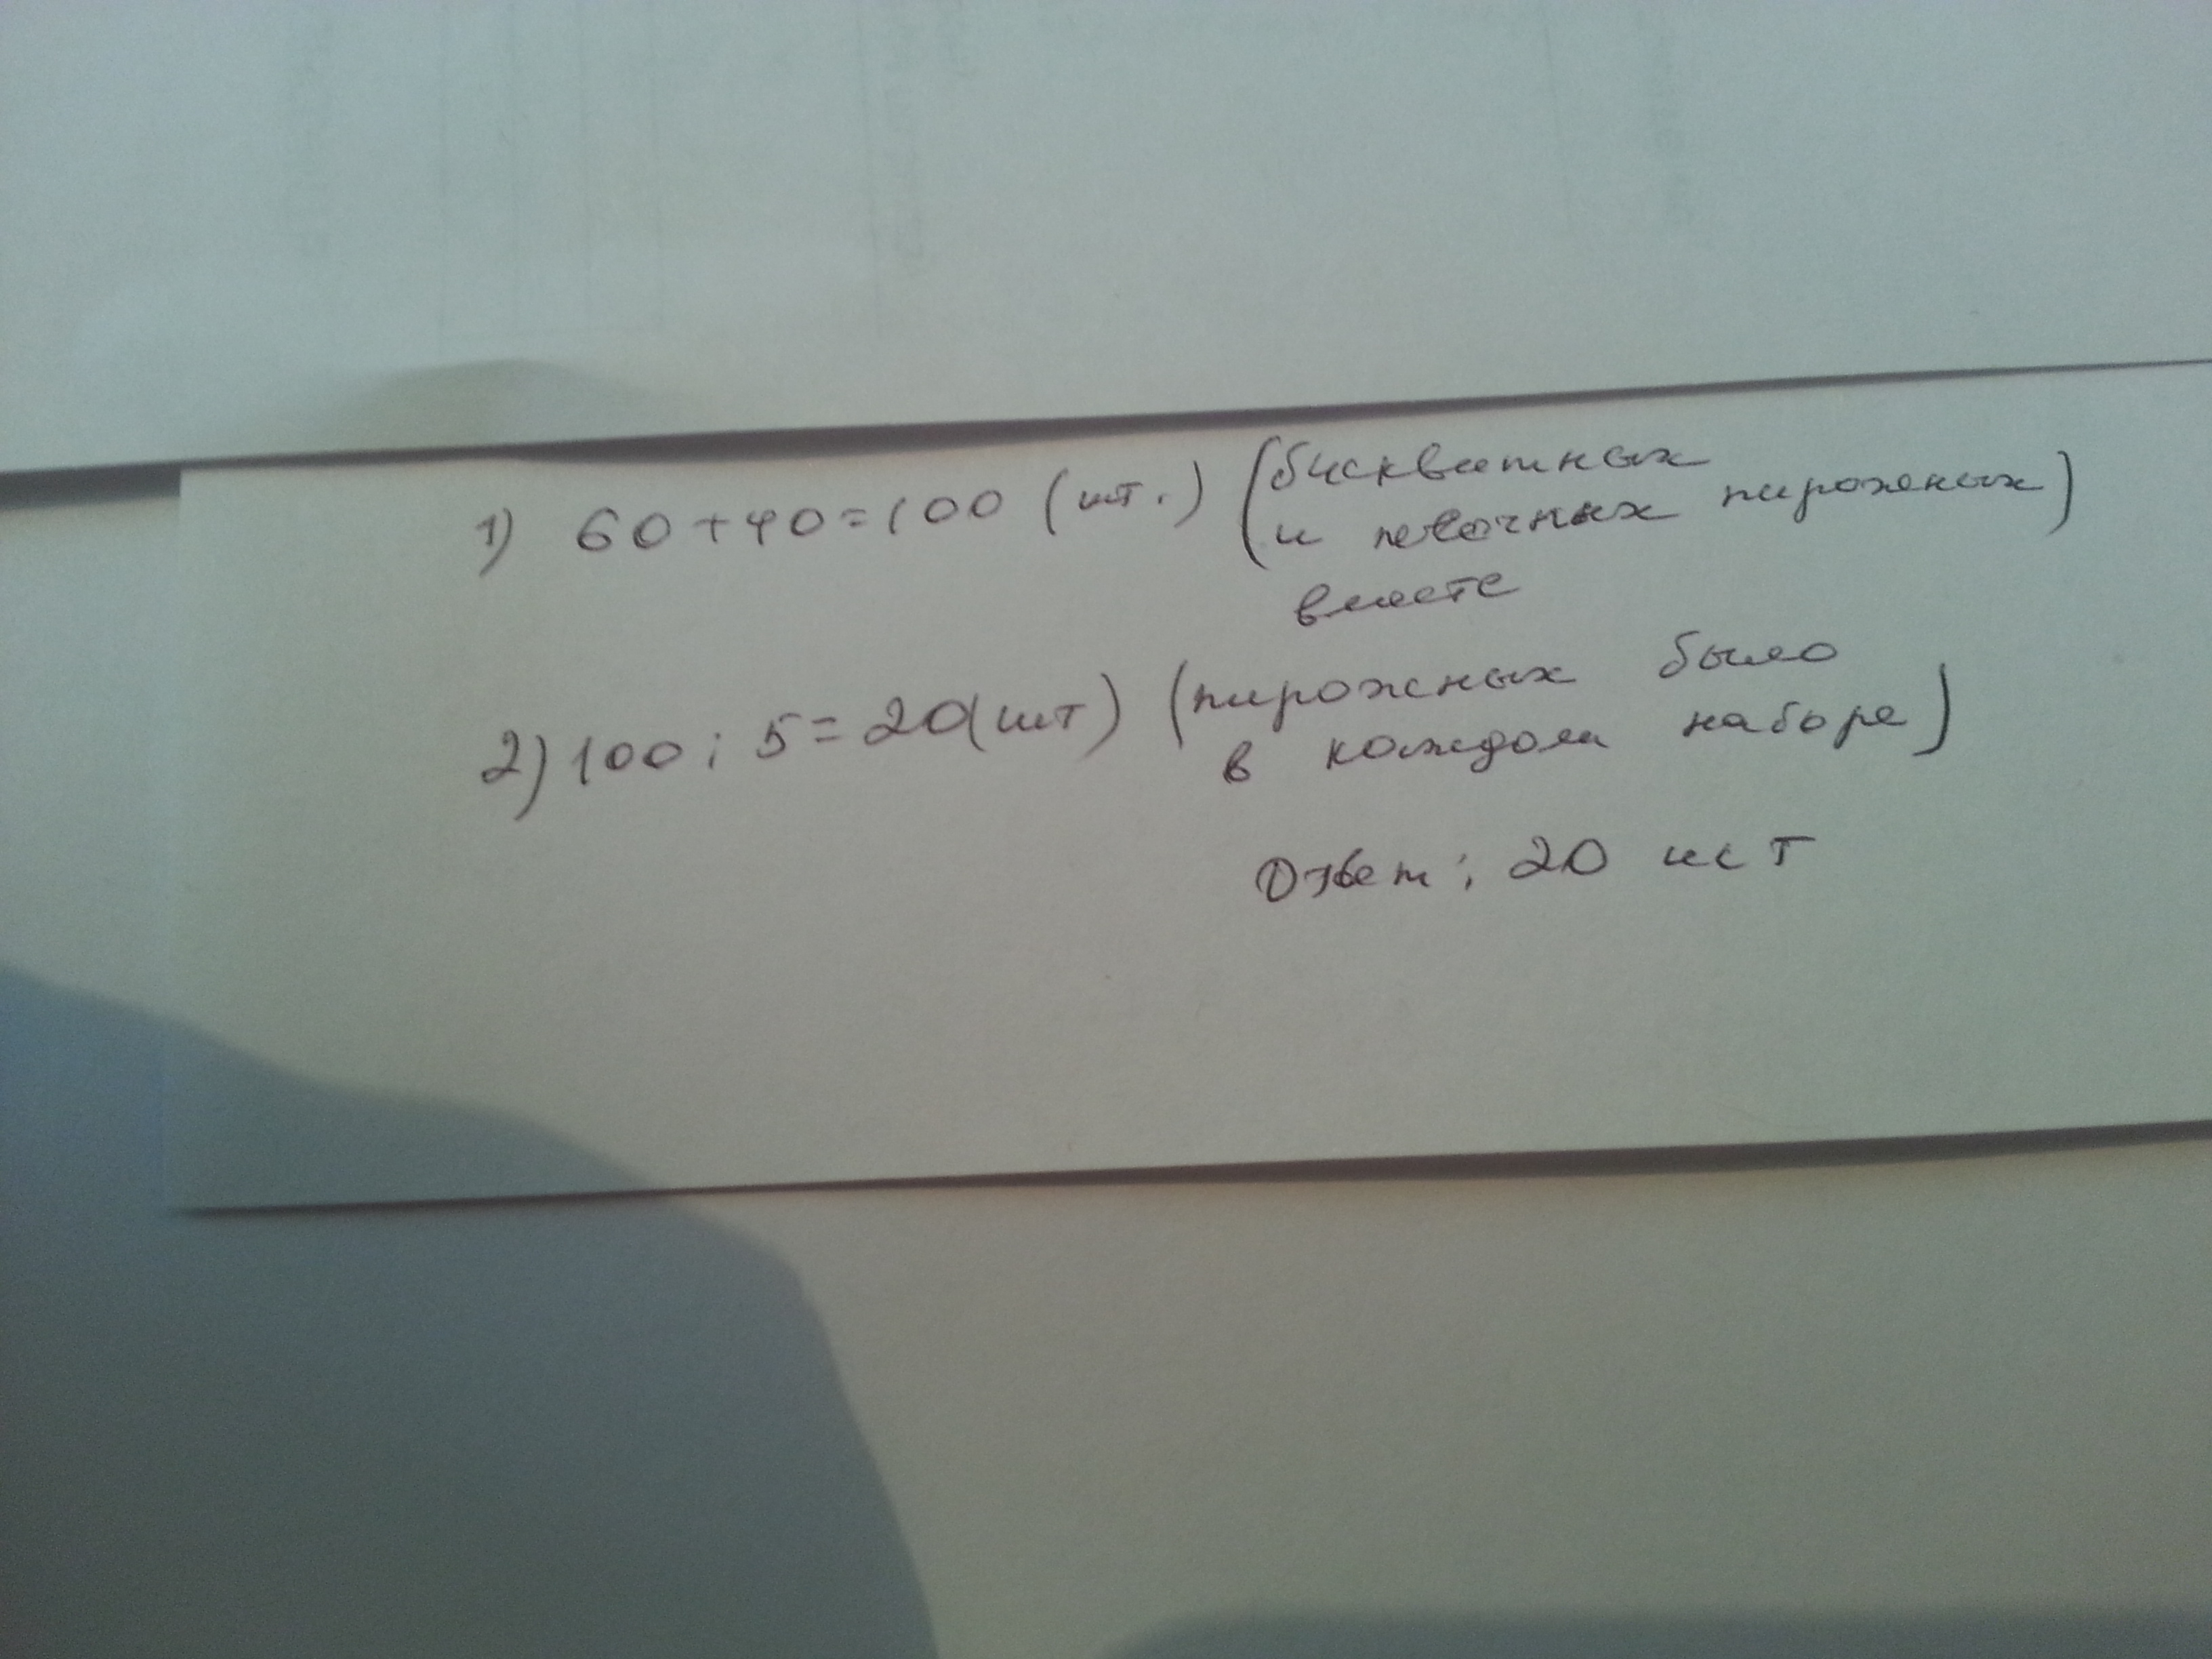 1) 60+40=100 (шт.) (бисквитных
и песочных пирожных)
вместе
2) 100 : 5 = 20 (шт) (пирожных было
в каждом наборе)
Ответ: 20 шт